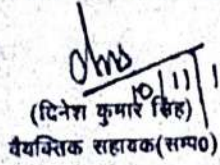 10/11/1
(दिनेश कुमार सिंह)
वैयक्तिक सहायक(सम्प0)